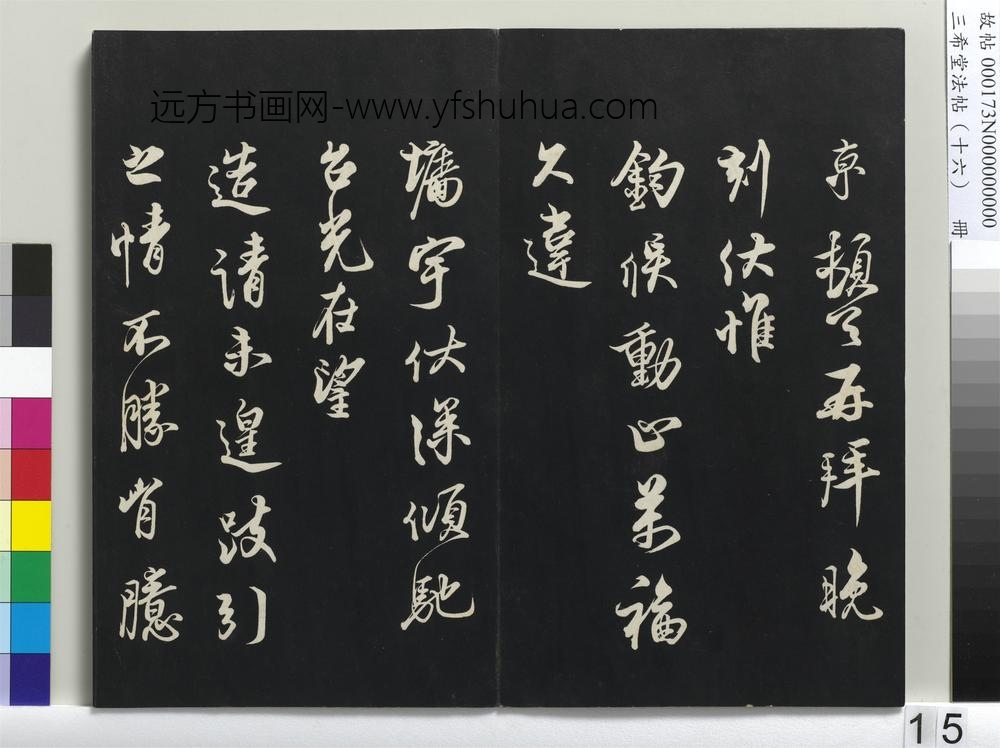 远方书画网-www.yfshuhua.com
故帖 000173N000000000
三希堂法帖(十六) 册
京頓首再拜晚
刻伏惟
鈞候動止萬福
久違
墉宇伏深傾馳
台光在望
造請未遑跂引
之情不勝胷臆
15